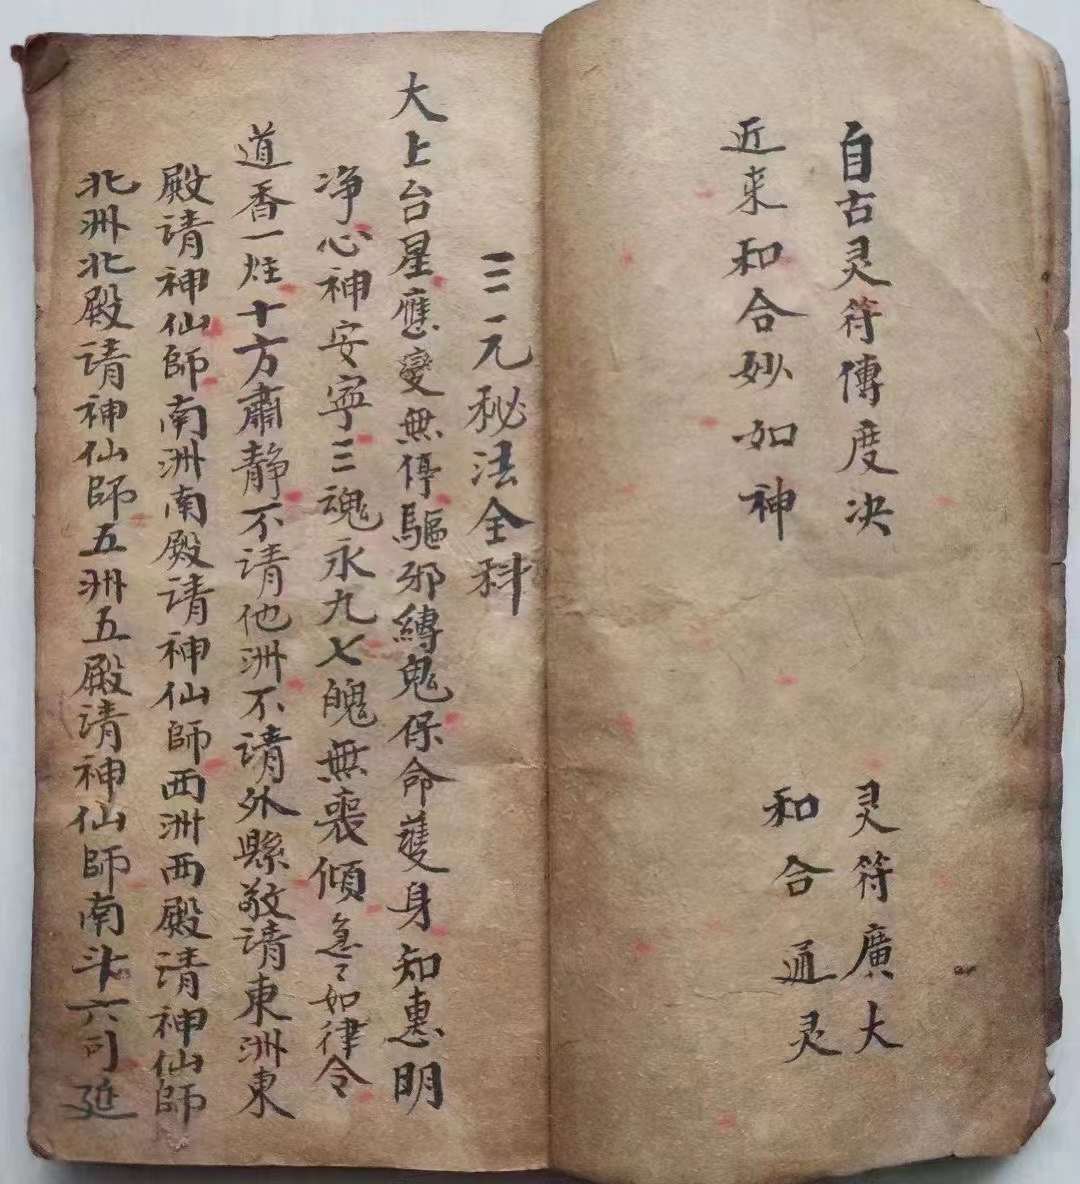 自古灵符傳度决
近来和合妙如神
灵符廣大
和合通灵
三元秘法全科
大上台星應變無停驅邪縛鬼保命護身知惠明
净心神安寧三魂永九七魄無喪傾急々如律令
道香一炷十方肅静不请他洲不请外縣敬请東洲東
殿请神仙師南洲南殿请神仙師西洲西殿请神仙師
北洲北殿请神仙師五洲五殿请神仙師南斗六司延